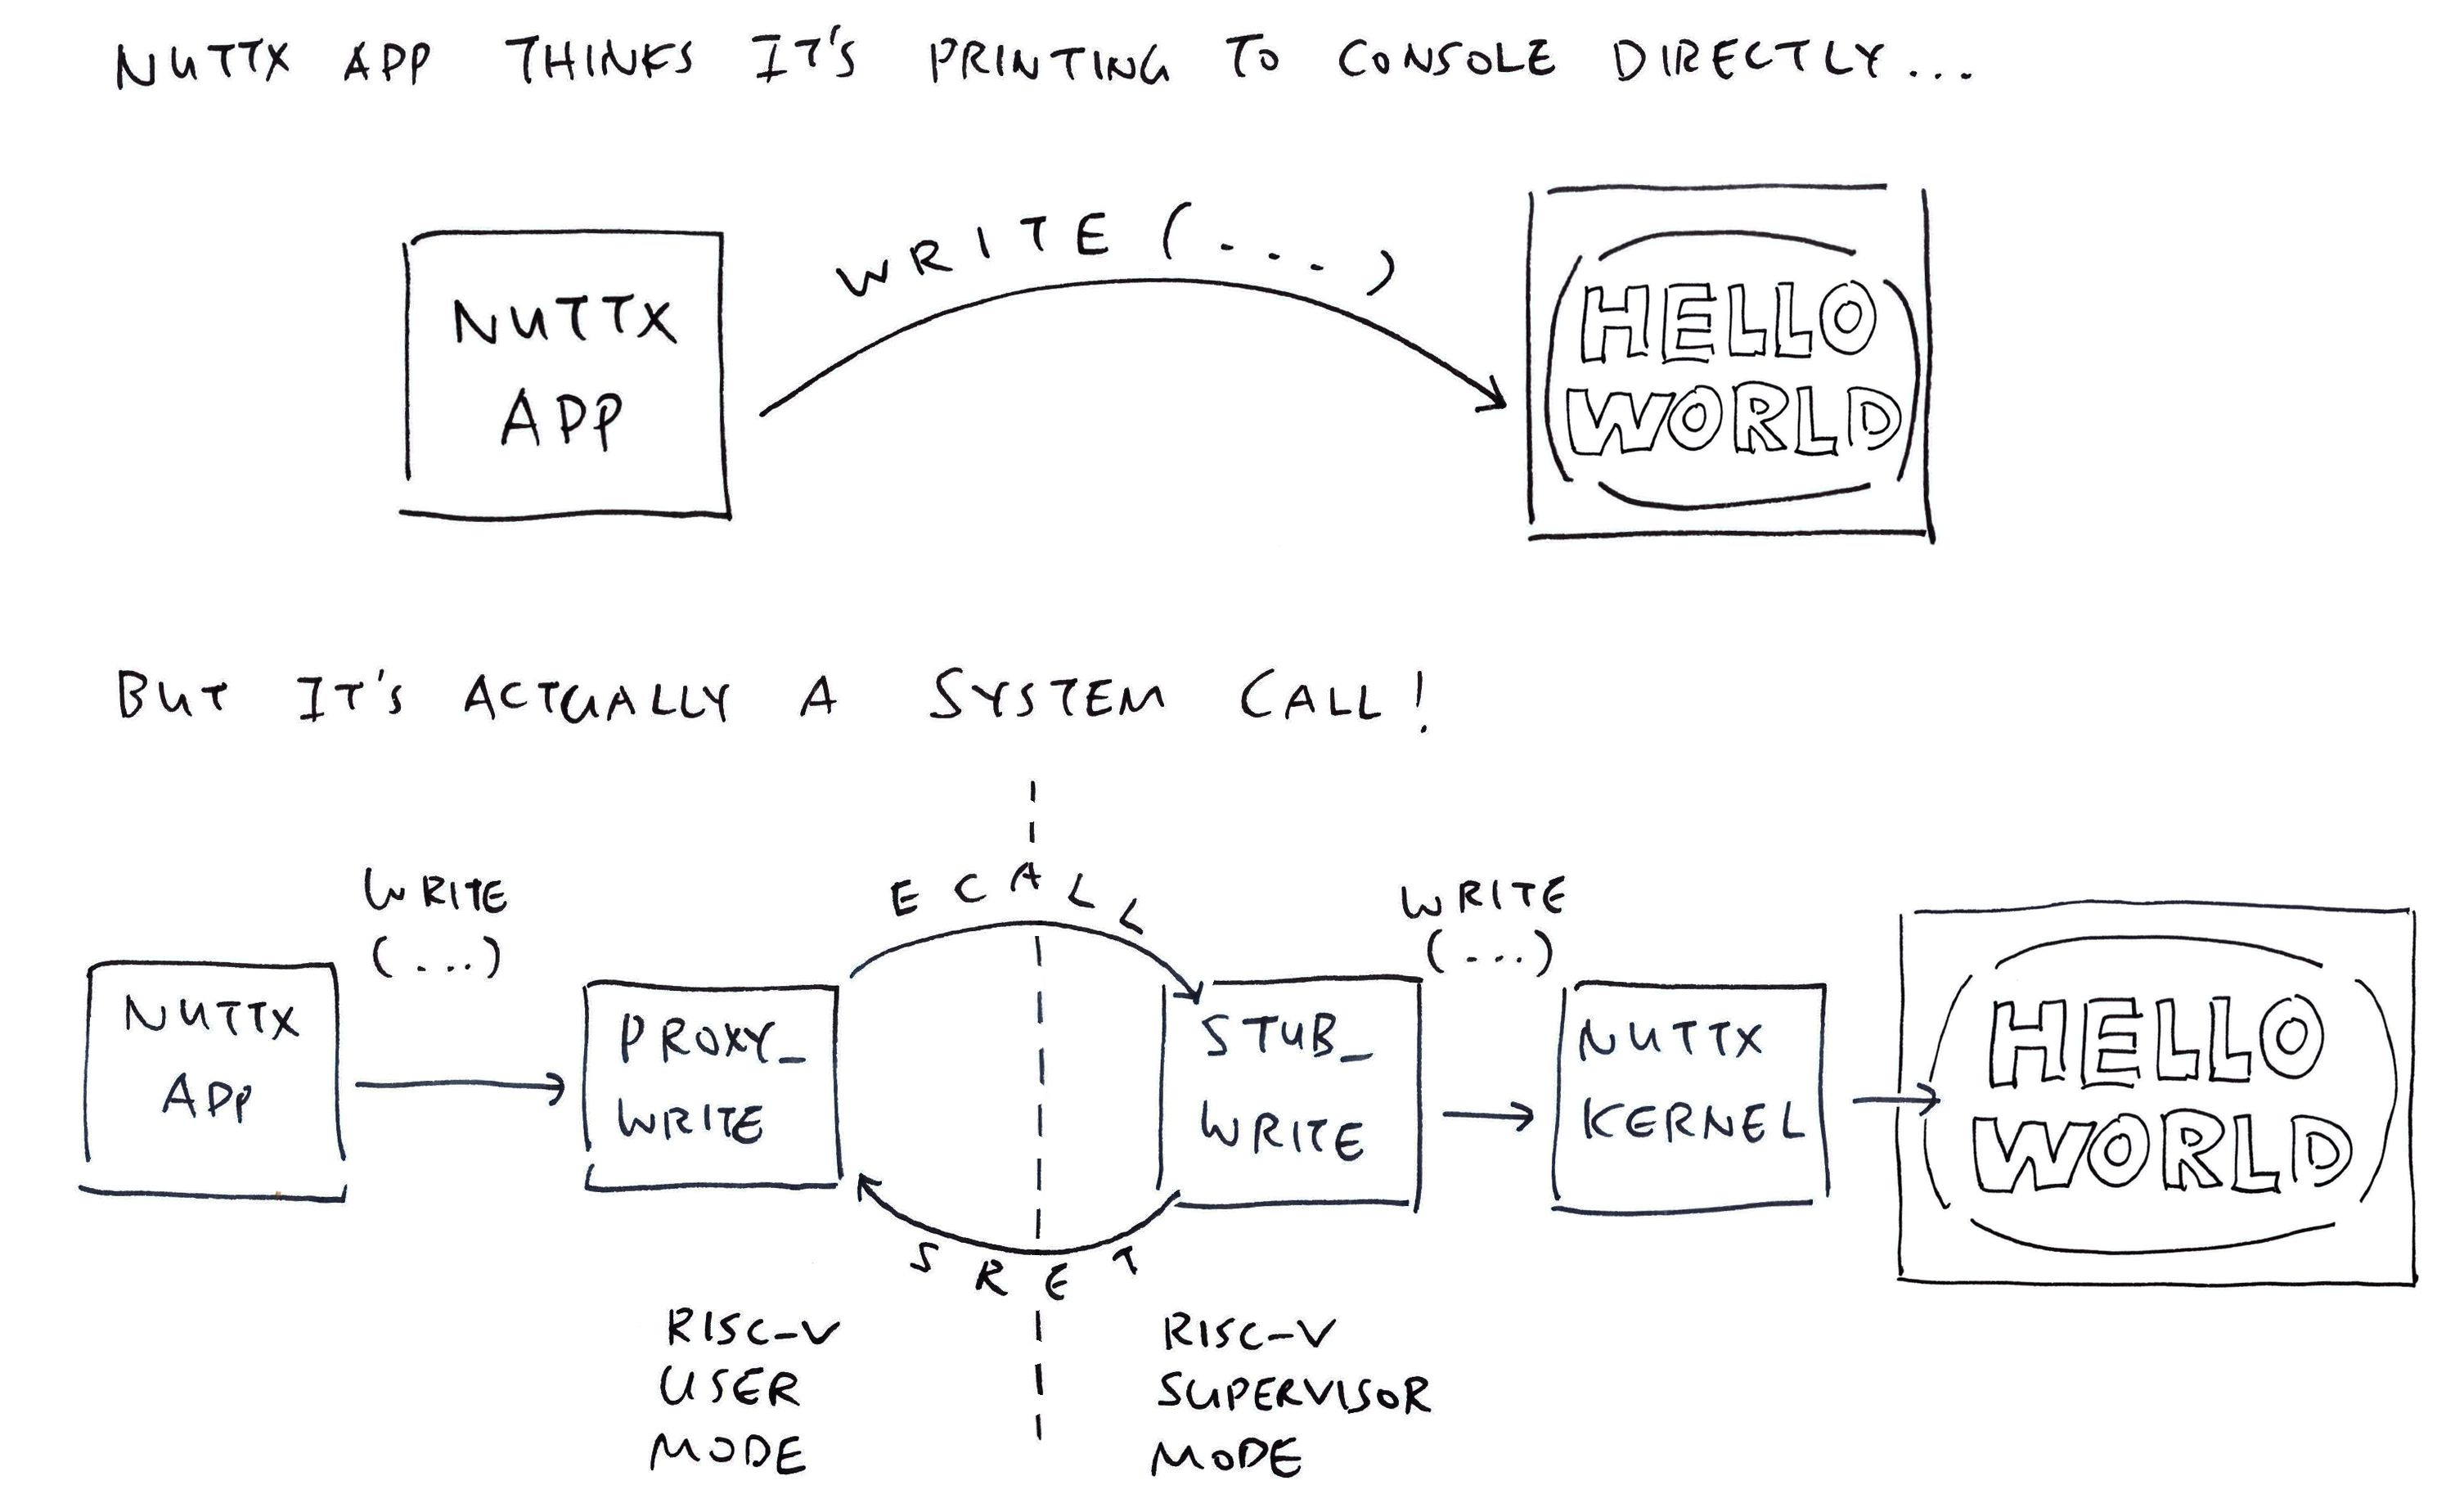 NUTTX APP THINKS IT'S PRINTING TO CONSOLE DIRECTLY...
WRITE (...)
NUTTX
APP
HELLO
WORLD
BUT IT'S ACTUALLY A SYSTEM CALL!
WRITE
(...)
NUTTX
APP
PROXY_
WRITE
ECALL
SRET
STUB_
WRITE
WRITE
(...)
NUTTX
KERNEL
HELLO
WORLD
RISC-V
USER
MODE
RISC-V
SUPERVISOR
MODE